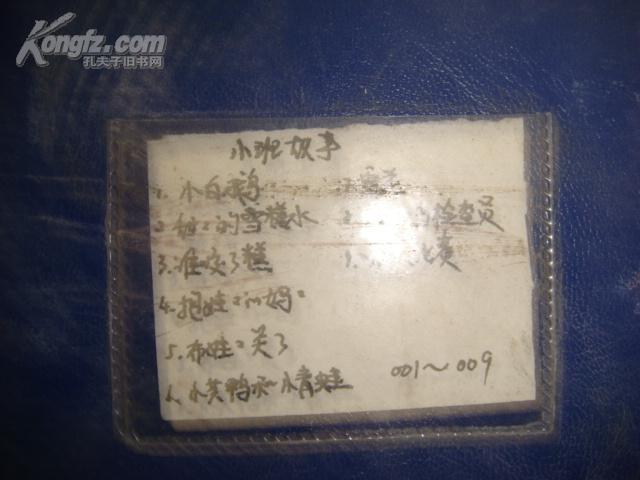 Kongfz.com
孔夫子旧书网
小班故事
1. 小白鹅
2. 甜〃的雪糕水
3. 谁咬了糕
4. 抱娃〃的妈〃
5. 布娃〃笑了
6. 小黄鸭和小青蛙
检查员
001～009